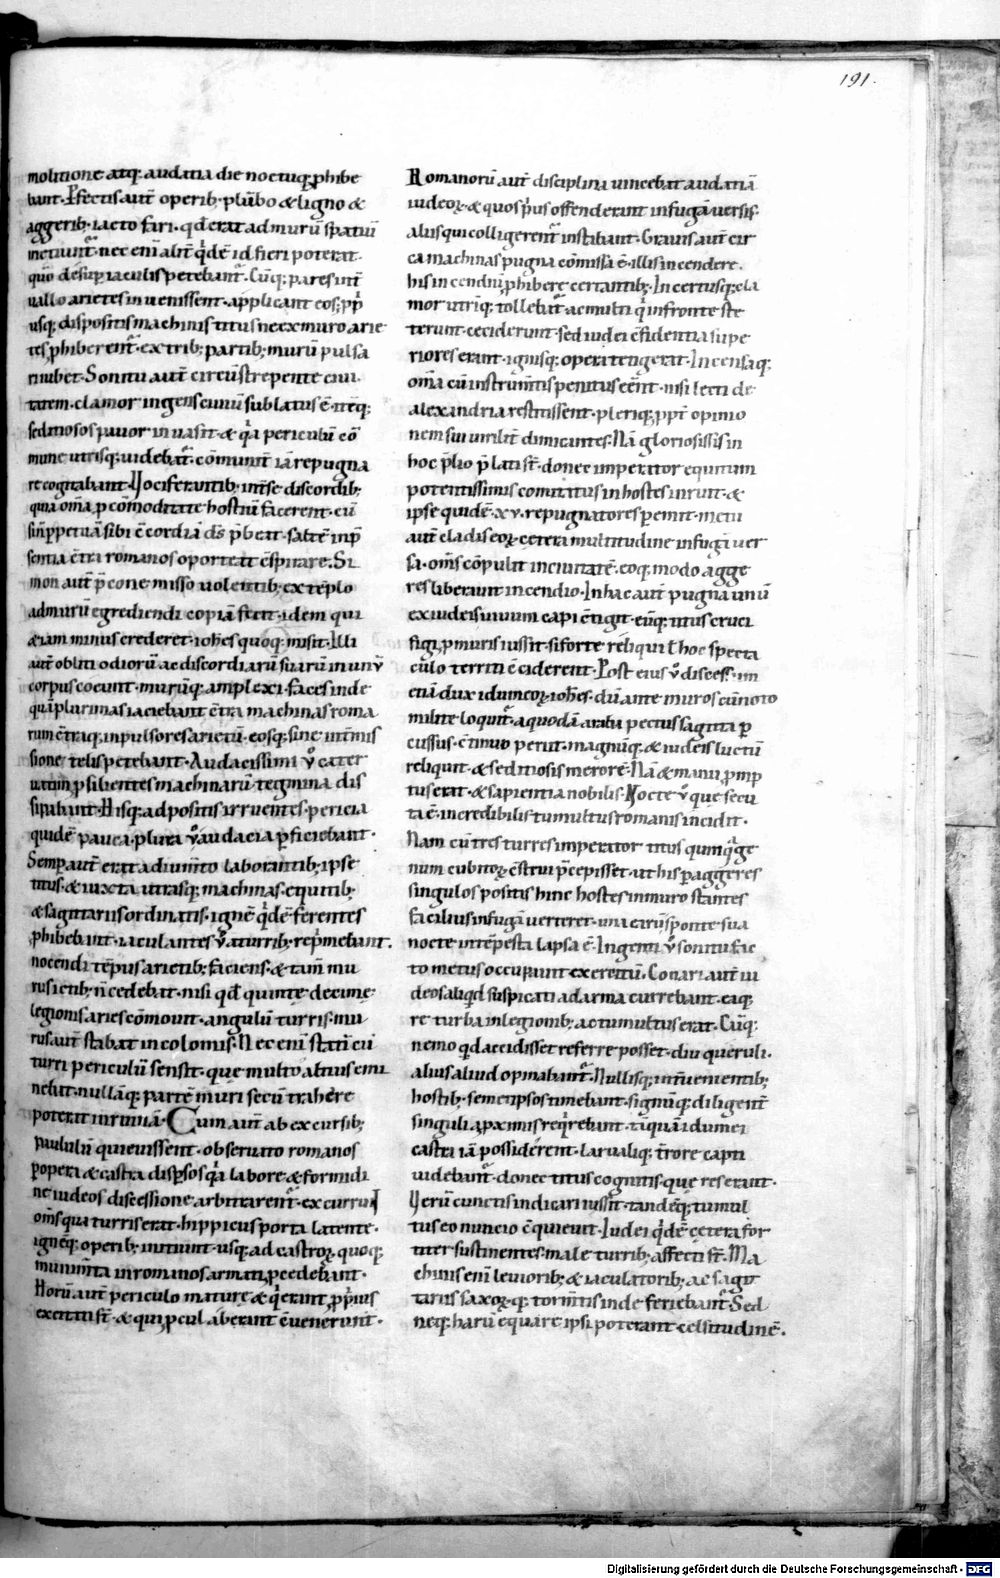 191.
molitione atq; audatia die noctuq; ꝓhibe
bant. Pfectis aut̄ operib; plūbo & ligno &
aggerib; iacto fari. qd̄ erat ad murū spatiū
nec eni᷒ alit̄ qͥdē id fieri poterat.
quō desup iaculis petebant̄. Cūq; pares int̄
uallo arietes inuenissent. applicant eos; ꝓp̄
usq; dispositis machinis titus ne ex muro arie
tes ꝓhiberent̄. ex trib; partib; murū pulsa
ri iubet. Sonitu aut̄ circū strepente ciui
tatem. clamor ingens ciuiū sublatus ē. itēq;
seditiosos pauor inuasit. & qͣa periculū cō
mune utrisq; uidebat̄. cōmunit̄ iā repugna
re cogitabant. Vociferantib; int̄ se discordib;
quia om̄a ꝓ cōmoditate hostiū facerent. cū
sin ꝑpetuā sibi c̄cordiā ds̄ p̄beat. saltē inp̄
sentia c̄tra romanos oporteat c̄spirare. Si
mon aut̄ p̄cone misso uolentib; ex tēplo
ad murū egrediendi copiā fecit. idem qui
& iam minus crederet. ioh̄es quoq; misit. Illi
aut̄ obliti odiorū ac discordiarū suarū in unū
corpus coeunt. murūq; amplexi. faces inde
quā plurimas iaciebant c̄tra machinas roma
rum c̄traq; inpulsores arietū. eosq; sine int̄mis
sione telis petebant. Audacissimi ů cater
uatim ꝓsilientes machinarū tegmina dis
sipabant. Hisq; adpositis irruentes. pericia
quidē pauca. plura ů audacia ꝑficiebant.
Semp aut̄ erat adium̄to laborantib; ipse
titus. & iuxta utrasq; machinas. equitib;
& sagittariis ordinatis. ignē qͥdē ferentes
ꝓhibebant. iaculantes ů a turrib; rep̄mebant.
nocendi tēpus arietib; faciens. & tam̄ mu
rus ictib; n̄ cedebat. nisi qd̄ quinte decimę
legionis aries cōmouit. angulū turris. mu
rus aut̄ stabat incolomis. Nec eni᷒ statī cū
turri periculū sensit. que multo altius emi
nebat. nullāq; partē muri secū trahere
poterat in ruinā. Cum aut̄ ab excursib;
paululū quieuissent. obseruato romanos
ꝑ opera & castra disp̄sos qͣa labore & formidi
ne iudeos discessione arbitrarent̄. excurrūt
om̄s qua turris erat. hippicus porta latente.
ignēq; operib; inmitunt. usq; ad castroꝝ quoq;
munim̄ta in romanos armati ꝓcedebant.
Horū aut̄ periculo mature & qͥ erant ꝓp̄ius
exciti st̄. & qui ꝓcul aberant c̄uenerunt.
Romanorū aut̄ disciplina uincebat audatiā
iudeoꝝ. & quos p̄us offenderant in fugā uersis.
aliis qui colligerent̄ instabant. Grauis aut̄ cir
ca machinas pugna cōmissa ē. illis incendere.
his incendiū ꝓhibere certantib;. Incertusq; cla
mor utriq; tollebat̄ ac multi qͥ in fronte ste
terunt. ceciderunt. sed iudei c̄fidentia supe
riores erant. ignisq; opera tetigerat. Incensaq;
om̄a cū instrum̄tis penitus ēēnt. nisi lecti de
alexandria restitissent. pleriq; ppt̄ opinio
nem sui uirilit̄ dimicantes. Nā gloriosissīs in
hoc p̄lio p̄lati st̄. donec imperator equitum
potentissimis comitatus in hostes inruit. &
ipse quidē .xv. repugnatores pemit. metu
aut̄ cladis eoꝝ cetera multitudine in fugā uer
sa. om̄s cōpulit in ciuitatē. eoq; modo agge
res liberauit incendio. In hac aut̄ pugna unū
ex iudeis uiuum capi c̄tigit. eūq; titus cruci
figi ꝓ muris iussit. si forte reliqui ł hoc specta
culo territi c̄ciderent. Post eius ů discess. im
etiā dux idumeoꝝ ioh̄es. dū ante muros cū noto
milite loquit̄. a quodā arabu pectus sagitta ꝑ
cussus. c̄tinuo perit. magnūq; & iudeis luctū
reliquit. & seditiosis merorē. Nā & manu ꝓmp
tus erat. & sapientia nobilis. Nocte ů que secu
ta ē. incredibilis tumultus romanis incidit.
Nam cū tres turres imperator titus quinqͣge
num cubitoꝝ c̄strui p̄cepisset. ut his ꝑ aggeres
singulos positis hinc hostes in muro stantes
facilius in fugā uerteret. una earū sponte sua
nocte intēpesta lapsa ē. Ingenti ů sonitu fac
to metus occupauit exercitū. Conari aut̄ iu
deos aliqd̄ suspicati ad arma currebant. eaq;
re turba in legionib; ac tumultus erat. Cūq;
nemo qd̄ accidisset referre posset. diu queruli.
alius aliud opinabant̄. Nullisq; int̄uenientib;
hostib; semetipsos timebant. signūq; diligent̄
singuli a ꝓximis reqͥrebant. tā quā idumei
castra iā possiderent. larualiq; t̄rore capti
uidebant̄. donec titus cognitis. que res erant.
Verū cunctis indicari iussit. tandēq; tumul
tus eo nuncio c̄quieuit. Iudei qͥdē cetera for
titer sustinentes. male turrib; affecti st̄. Ma
chinis eni᷒ leuiorib; & iaculatorib; ac sagit
tariis saxoꝝ q; torm̄tis inde feriebant̄. Sed
neq; harū equare ipsi poterant celsitudinē.
Digitalisierung gefördert durch die Deutsche Forschungsgemeinschaft - DFG